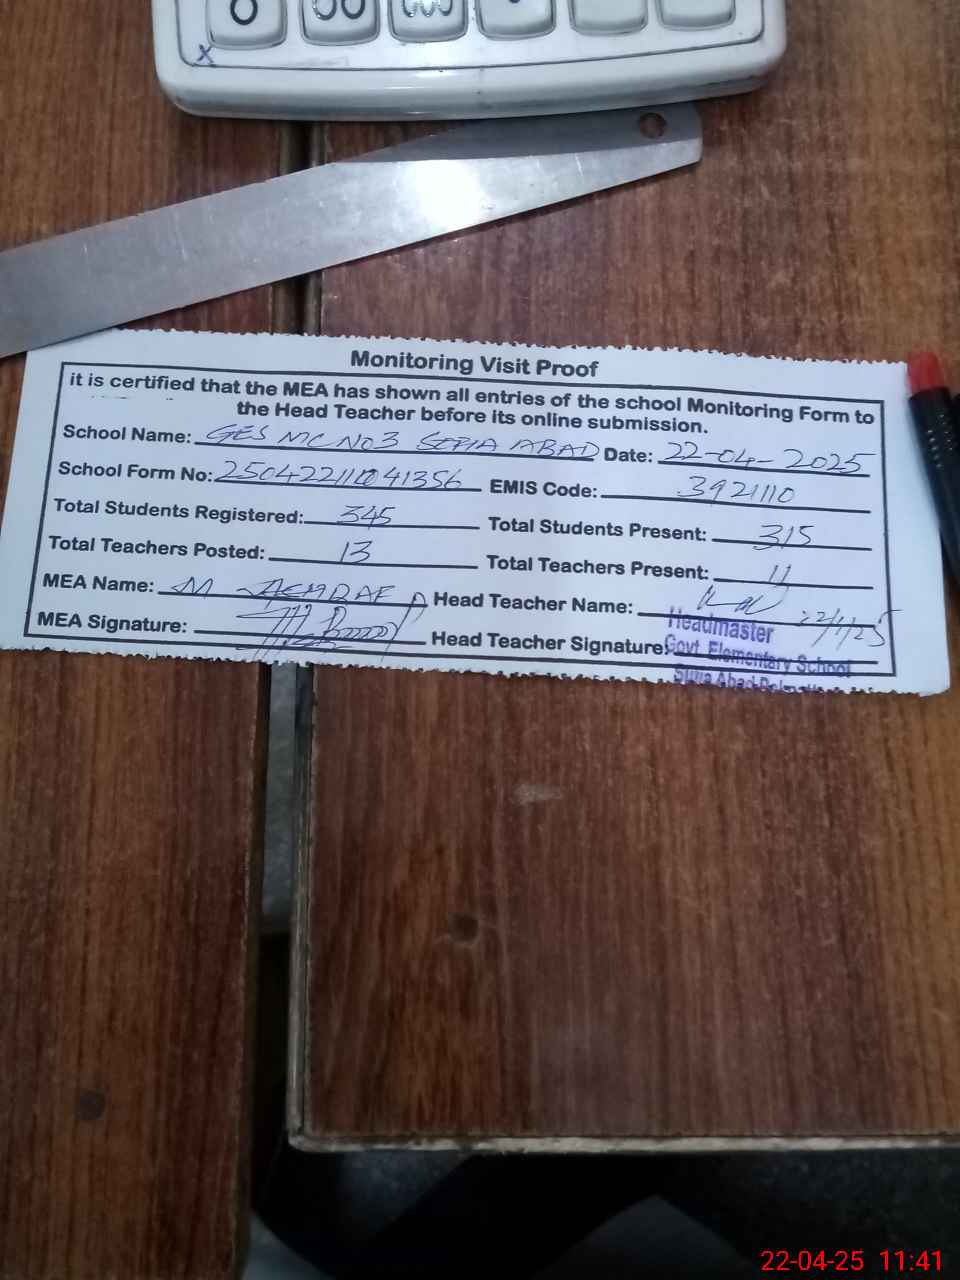 Monitoring Visit Proof
it is certified that the MEA has shown all entries of the school Monitoring Form to
the Head Teacher before its online submission.
School Name: GES MC NO3 SOFIA ABAD Date: 22-04-2025
School Form No: EMIS Code: 3921110
Total Students Registered: 345 Total Students Present: 315
Total Teachers Posted: 13 Total Teachers Present: 11
MEA Name: M Head Teacher Name:
MEA Signature: Head Teacher Signature:
Headmaster
Govt. Elementary School
Abad
22-04-25 11:41